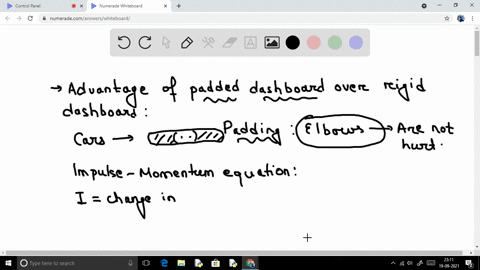 Control Panel
Numerade Whiteboard
numerade.com/answers/whiteboard/
→ Advantage of padded dashboard over rigid
dashboard :
Cars → Padding : Elbows → Are not
hurt.
Impulse - Momentum equation :
I = change in
Type here to search
23:11
19-09-2021